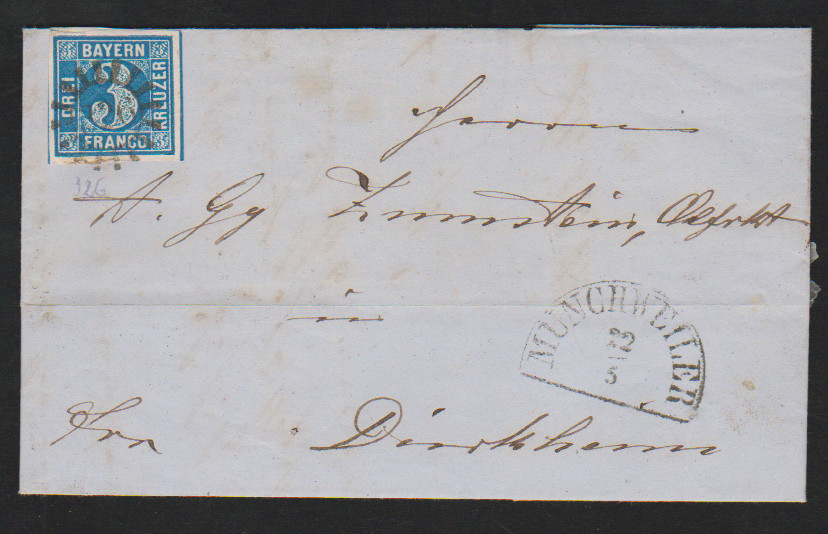 BAYERN
DREI
3
KREUZER
FRANCO
326
Herrn
A. Gg Zumstein,
in
MÜNCHWEILER
22
5
Fro Dürkheim